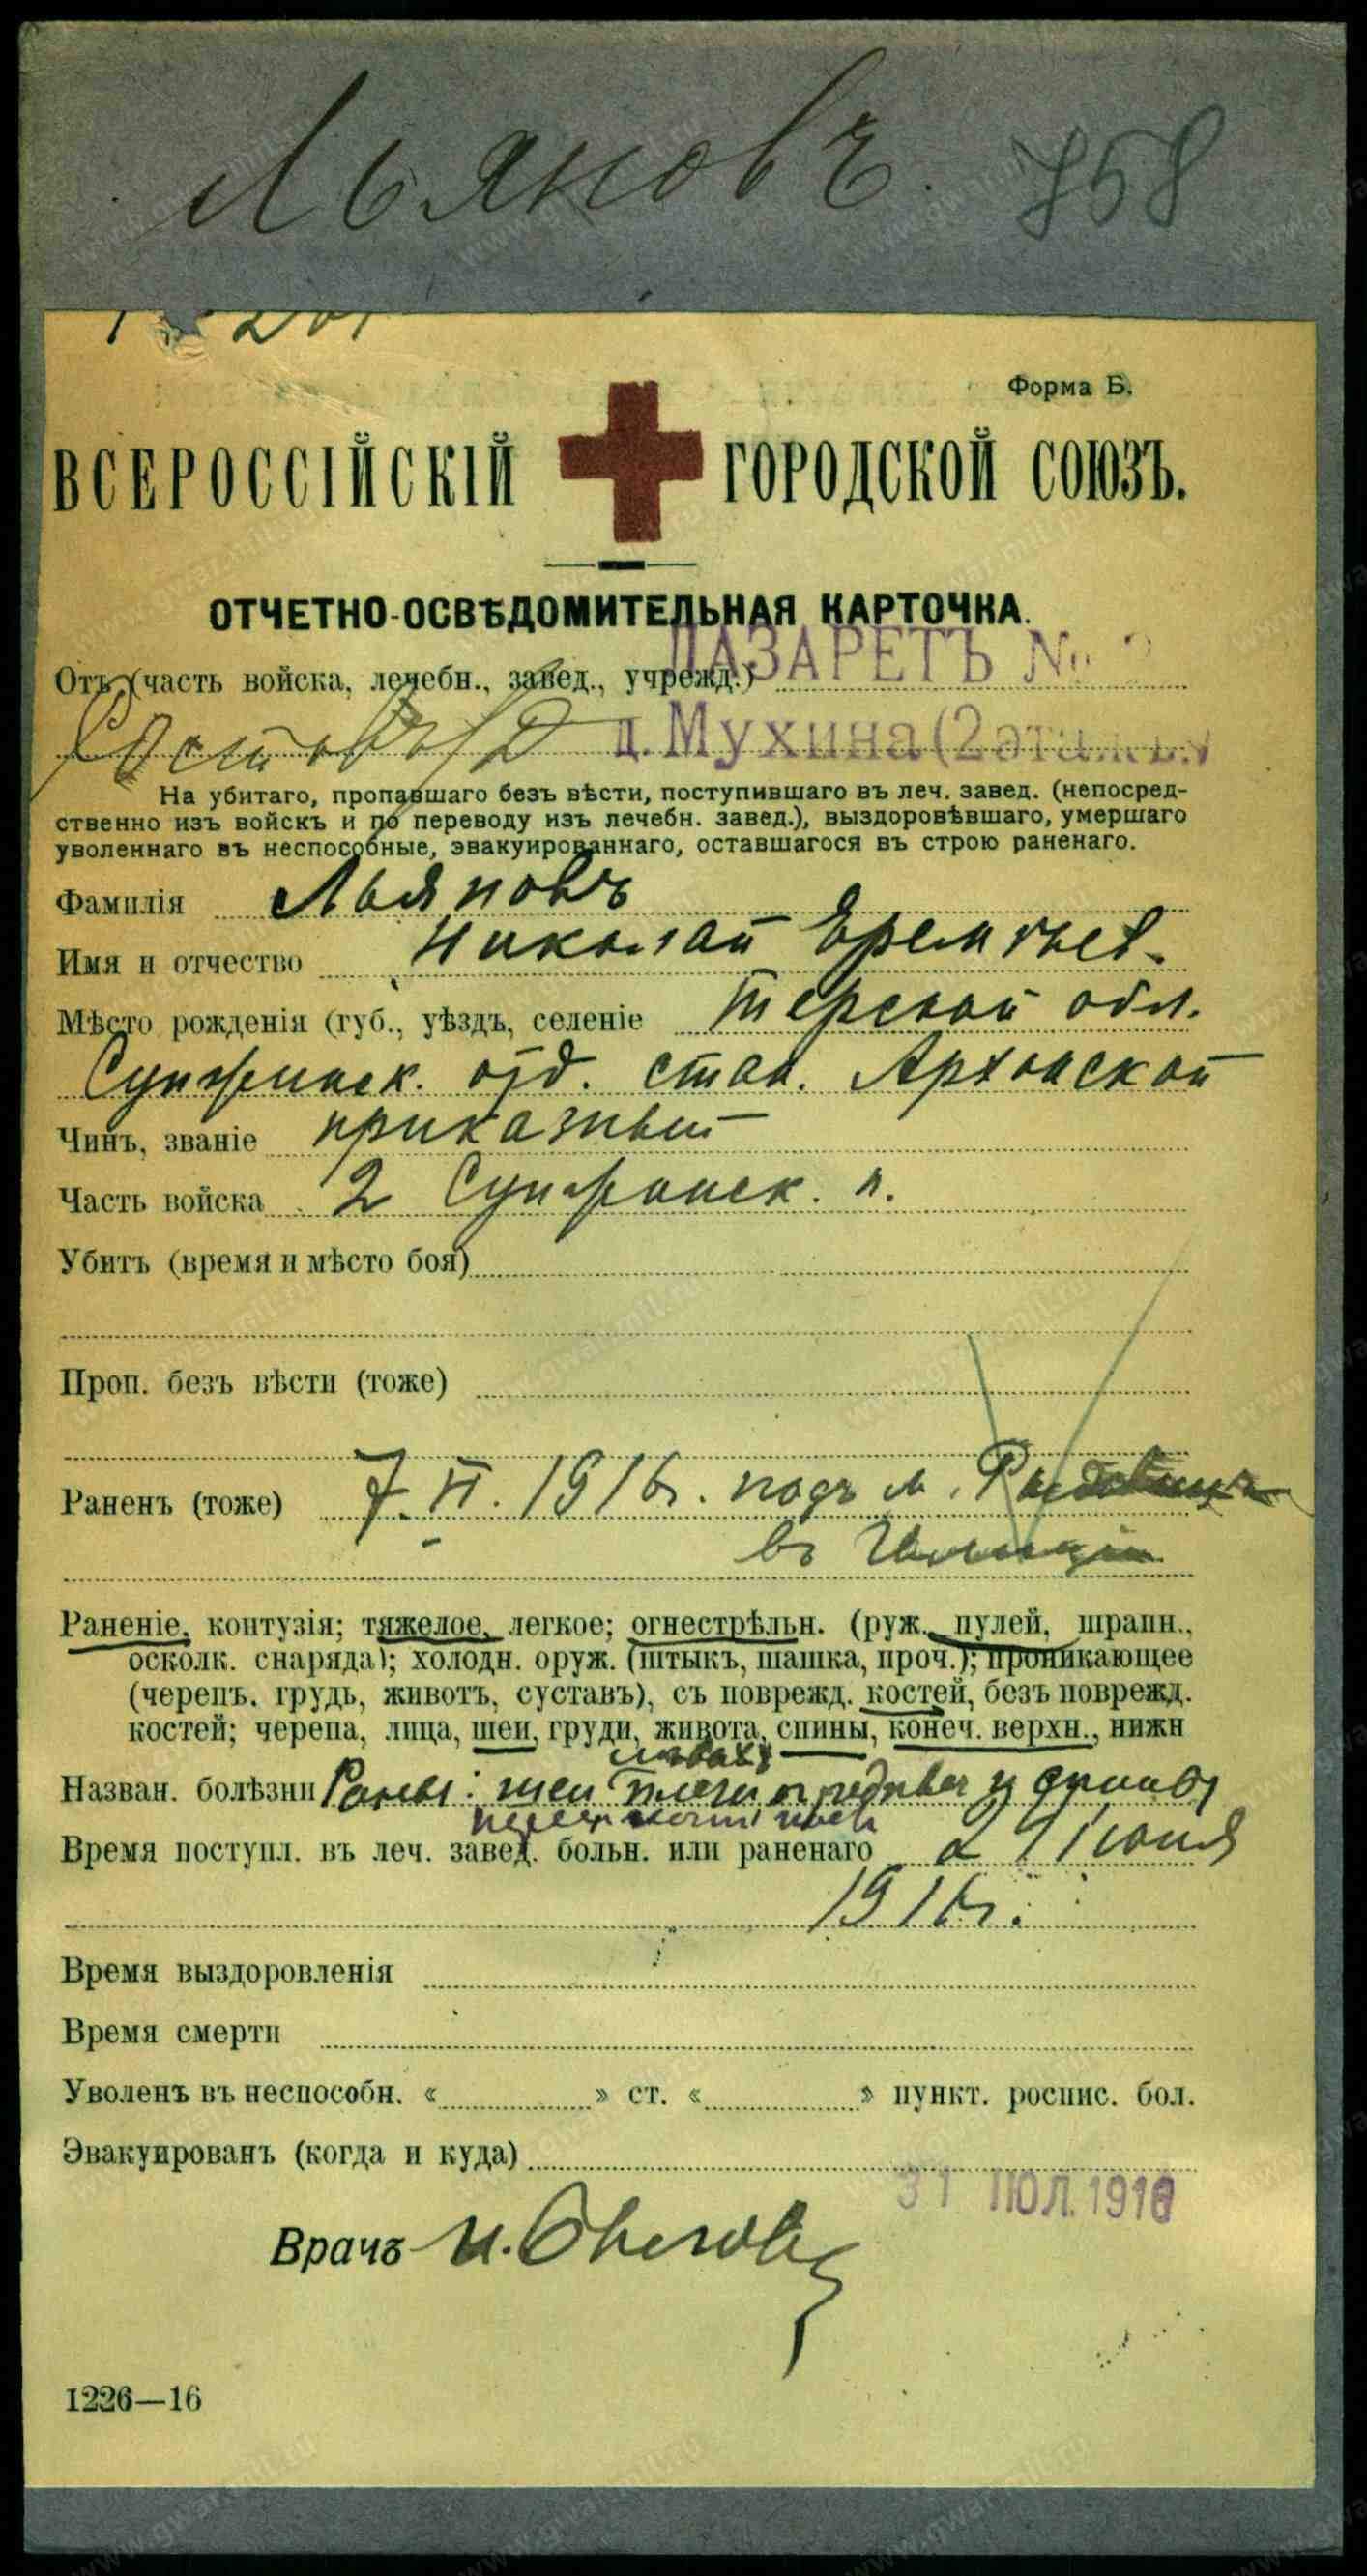 Льяновъ. 758
Форма Б.
ВСЕРОССІЙСКІЙ ГОРОДСКОЙ СОЮЗЪ.
ОТЧЕТНО-ОСВѢДОМИТЕЛЬНАЯ КАРТОЧКА.
Отъ (часть войска, лечебн., завед., учрежд.) ЛАЗАРЕТЪ №
Ростовъ/Д д. Мухина (2 этажъ)
На убитаго, пропавшаго безъ вѣсти, поступившаго въ леч. завед. (непосред-
ственно изъ войскъ и по переводу изъ лечебн. завед.), выздоровѣвшаго, умершаго
уволеннаго въ неспособные, эвакуированнаго, оставшагося въ строю раненаго.
Фамилія Льяновъ
Имя и отчество Николай Еремѣев.
Мѣсто рожденія (губ., уѣздъ, селеніе Терской обл.
Сунженск. отд. стан. Архонской
Чинъ, званіе приказный
Часть войска 2 Сунженск. п.
Убитъ (время и мѣсто боя)
Проп. безъ вѣсти (тоже)
Раненъ (тоже) 7.VI.1916г. подъ м.
въ
Раненіе, контузія; тяжелое, легкое; огнестрѣльн. (руж. пулей, шрапн.,
осколк. снаряда); холодн. оруж. (штыкъ, шашка, проч.); проникающее
(черепъ, грудь, животъ, суставъ), съ поврежд. костей, безъ поврежд.
костей; черепа, лица, шеи, груди, живота, спины, конеч. верхн., нижн
Назван. болѣзни Раны: шеи плеча
Время поступл. въ леч. завед. больн. или раненаго 2 Іюня
1916г.
Время выздоровленія
Время смерти
Уволенъ въ неспособн. « » ст. « » пункт. роспис. бол.
Эвакуированъ (когда и куда)
31 ІЮЛ. 1916
Врачъ
1226—16